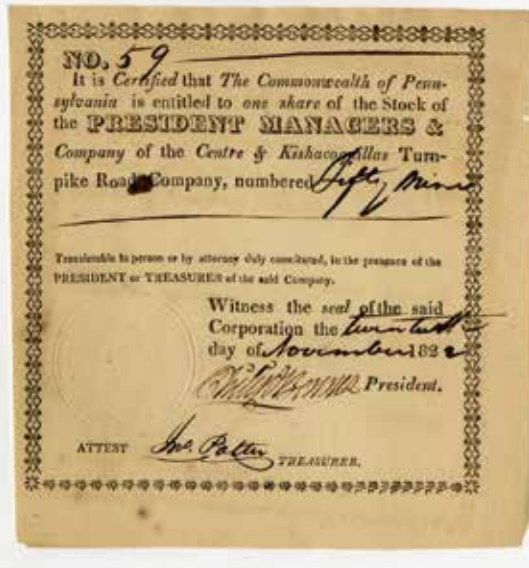 NO. 59
It is Certified that The Commonwealth of Penn-
sylvania is entitled to one share of the Stock of
the PRESIDENT MANAGERS &
Company of the Centre & Kishacoquillas Turn-
pike Road Company, numbered Fifty Nine
Transferable in person or by attorney duly constituted, in the presence of the
PRESIDENT or TREASURER of the said Company.
Witness the seal of the said
Corporation the twentieth
day of November 1822
President.
ATTEST Jno. Potter TREASURER.